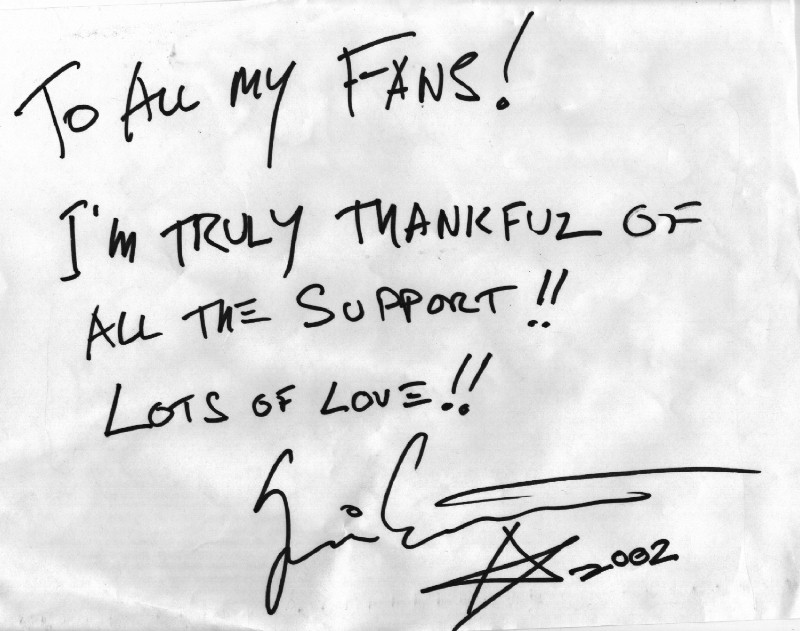 To All my Fans!
I'm truly thankful of
all the support!!
Lots of love!!
2002